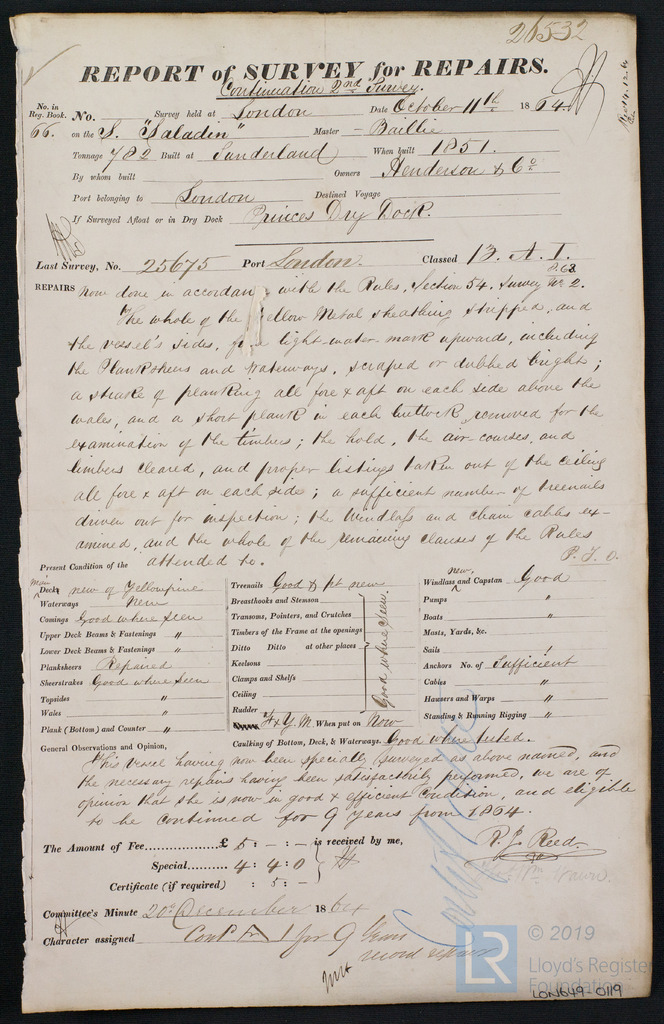 26532
REPORT of SURVEY for REPAIRS.
Continuation 2nd Survey.
No. in Reg. Book. No. Survey held at London Date October 11th 1864
66. on the S. "Saladin" Master - Baillie
Tonnage 782 Built at Sunderland When built 1851.
By whom built Owners Henderson & Co
Port belonging to London Destined Voyage
If Surveyed Afloat or in Dry Dock Princes Dry Dock.
Last Survey, No. 25675 Port London. Classed 13. A. 1.
REPAIRS now done in accordance with the Rules, Section 54. Survey No. 2.
The whole of the Yellow Metal sheathing stripped, and
the vessel's sides, from light-water mark upwards, including
the Planksheers and Waterways, scraped or dubbed bright;
a strake of planking all fore & aft on each side above the
wales, and a short plank in each buttock removed for the
examination of the timbers; the hold, the air-courses, and
limbers cleared, and proper listings taken out of the ceiling
all fore & aft on each side; a sufficient number of treenails
driven out for inspection; the Windlass and chain cables ex-
amined, and the whole of the remaining clauses of the Rules
attended to. P. T. O.
Present Condition of the
Main Deck new of Yellowpine
Waterways New
Comings Good where seen
Upper Deck Beams & Fastenings "
Lower Deck Beams & Fastenings "
Planksheers Repaired
Sheerstrakes Good where seen
Topsides "
Wales "
Plank (Bottom) and Counter "
Treenails Good & pt new
Breasthooks and Stemson
Transoms, Pointers, and Crutches
Timbers of the Frame at the openings
Ditto Ditto at other places
Keelsons
Clamps and Shelfs
Ceiling
Rudder
Good where seen.
F & Y. M. When put on Now
Caulking of Bottom, Deck, & Waterways. Good where tested.
new.
Windlass and Capstan Good
Pumps "
Boats "
Masts, Yards, &c.
Sails "
Anchors No. of Sufficient
Cables "
Hawsers and Warps "
Standing & Running Rigging "
General Observations and Opinion,
This vessel having now been specially surveyed as above named, and
the necessary repairs having been satisfactorily performed, we are of
opinion that she is now in good & efficient condition, and eligible
to be continued for 9 years from 1864.
The Amount of Fee £ 5 : - : - is received by me,
Special 4 : 4 : 0
Certificate (if required) : 5 : -
R. J. Reed.
Committee's Minute 20th December 1864
Character assigned Contd A 1 for 9 Years
record repairs
LR © 2019
Lloyd's Register
Foundation
LON649-0119